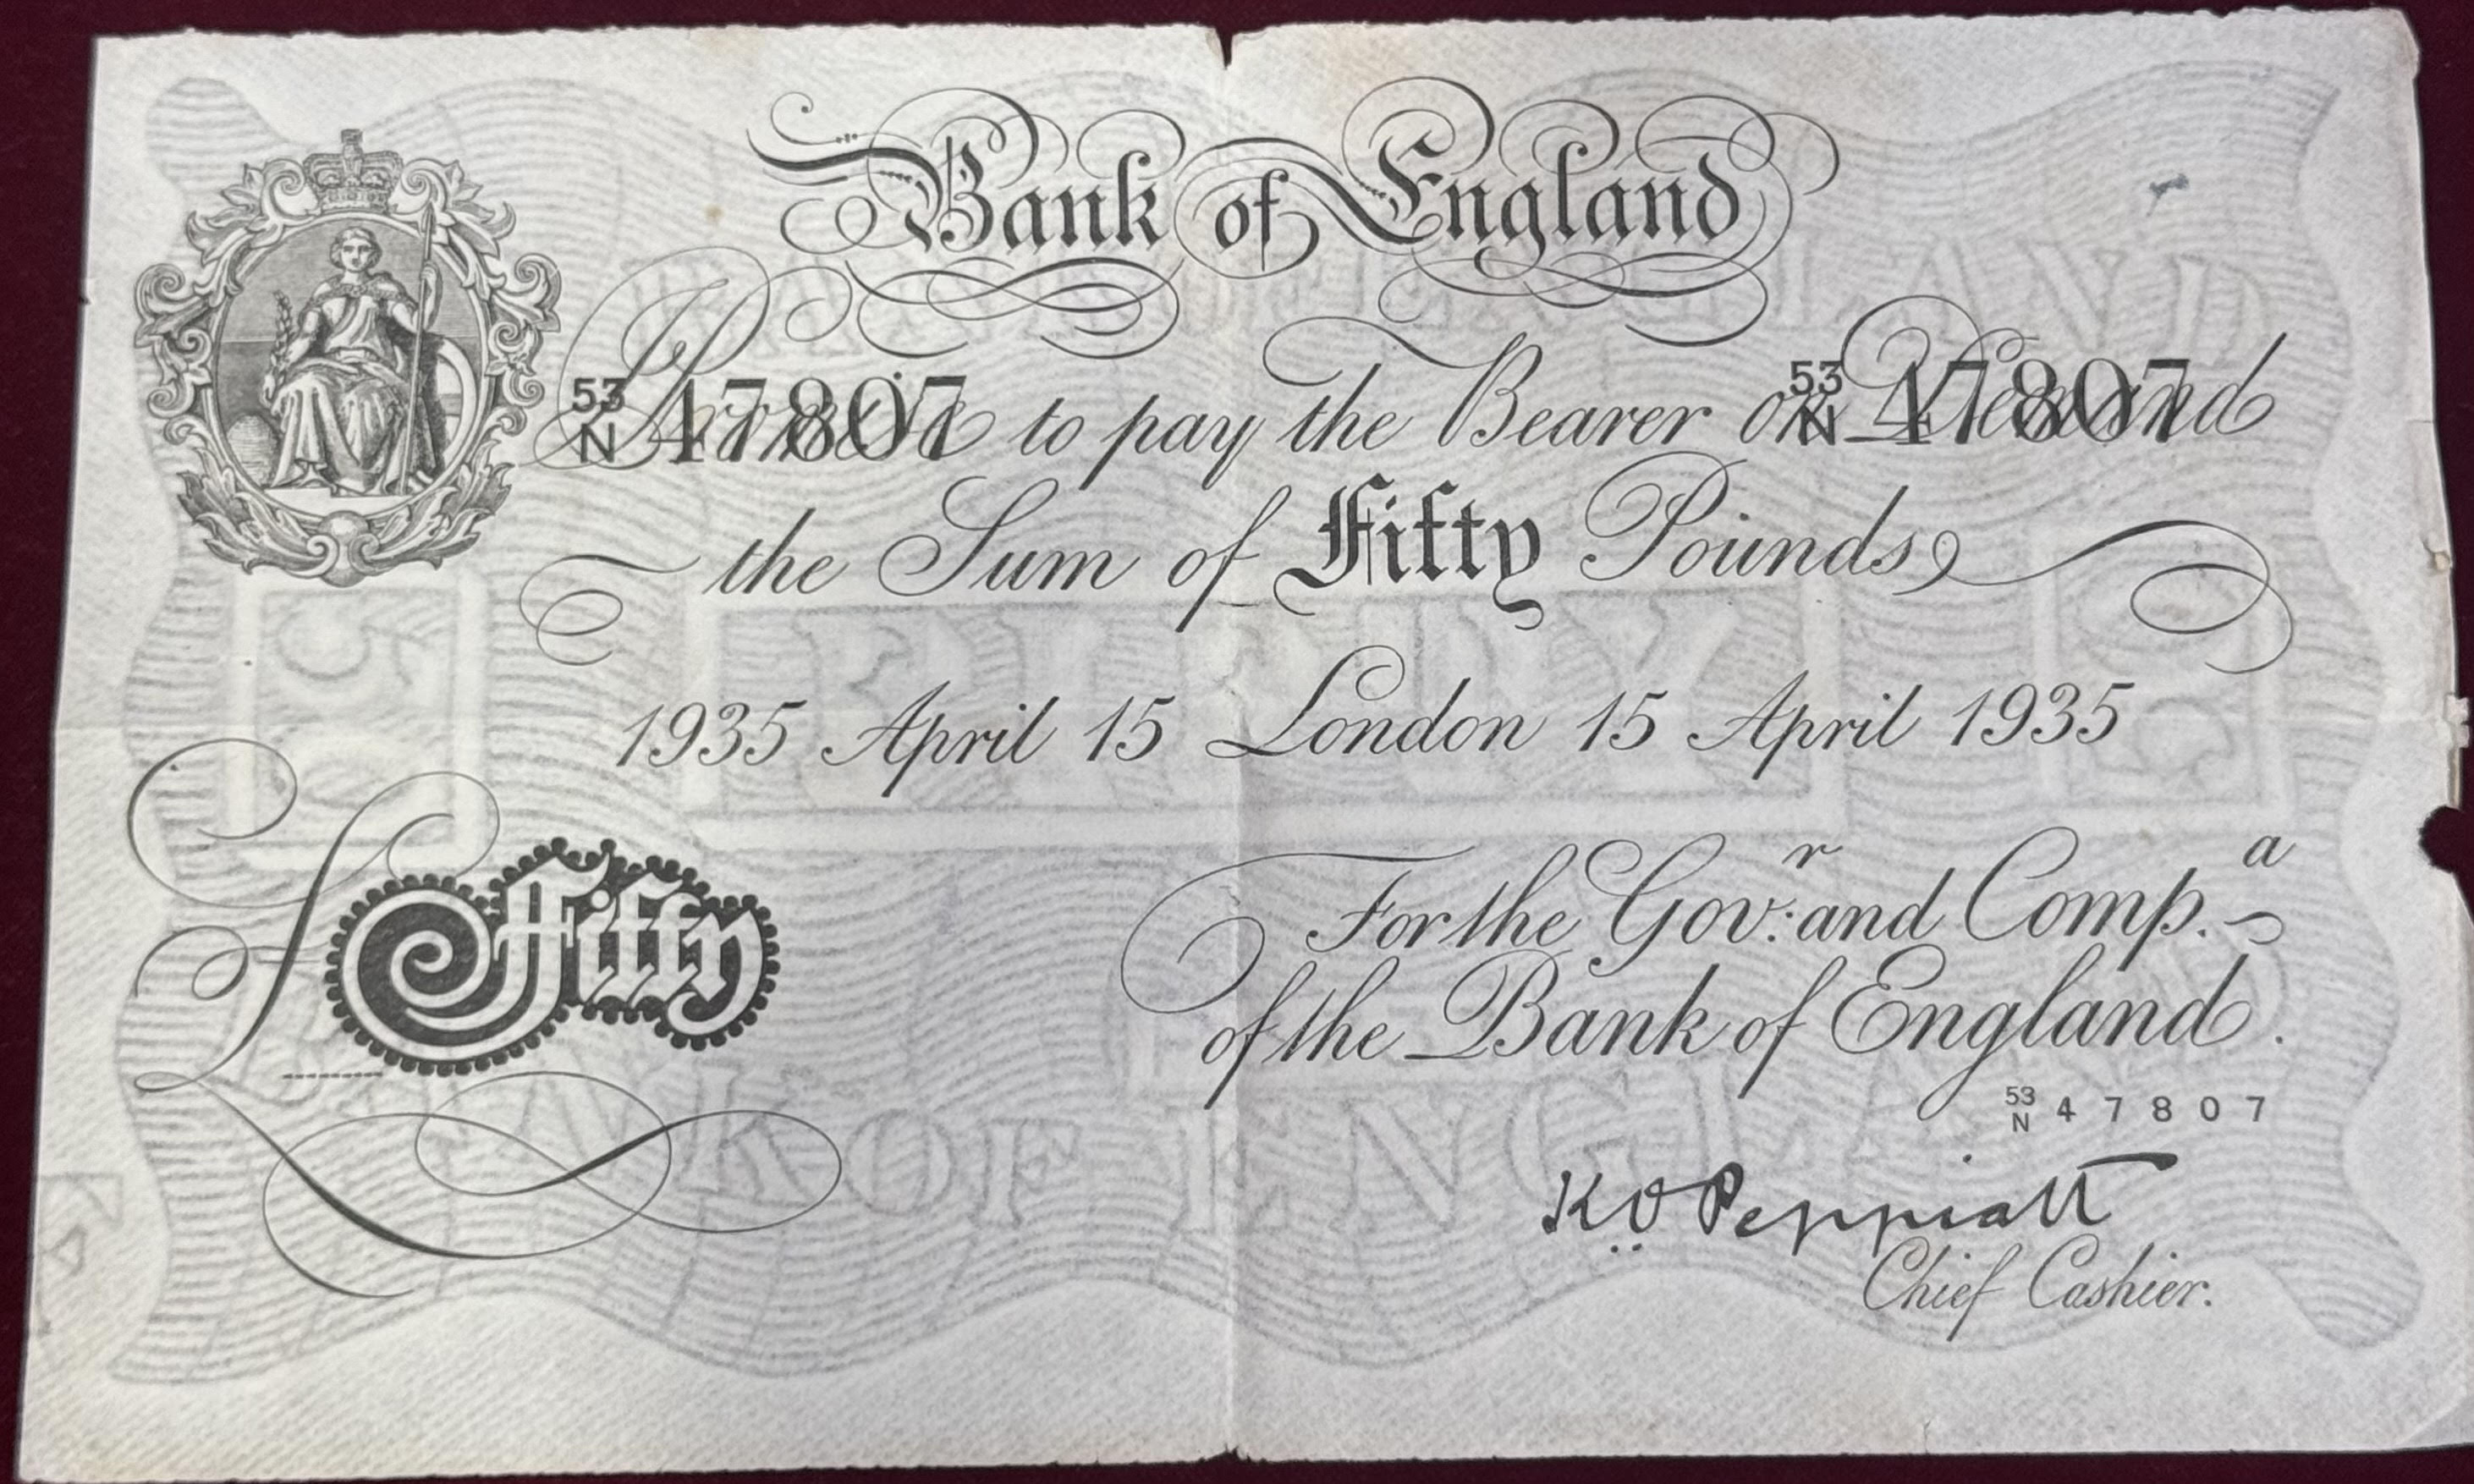 Bank of England
53 N 47807 53 N 47807
I Promise to pay the Bearer on Demand
the Sum of Fifty Pounds
1935 April 15 London 15 April 1935
For the Gov:r and Comp.a
£ Fifty
of the Bank of England.
53 N 47807
K O Peppiatt
Chief Cashier.
FIFTY
BANK OF ENGLAND